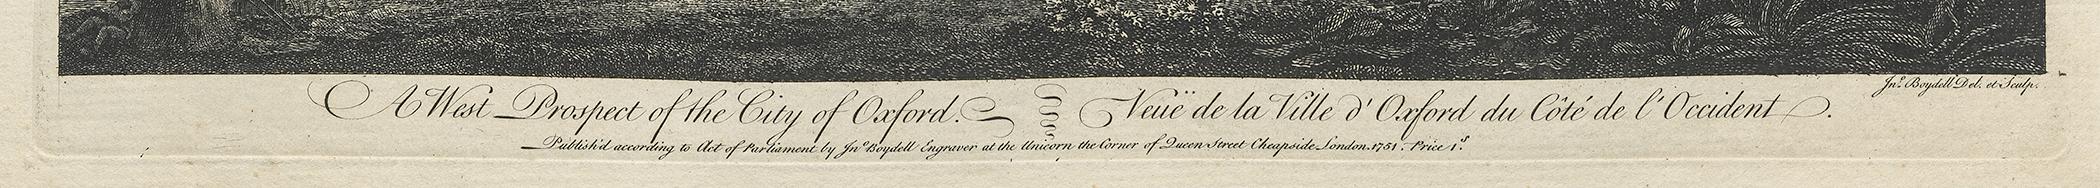 Jnº. Boydell Del. et Sculp.
A West Prospect of the City of Oxford. Veuë de la Ville d'Oxford du Côté de l'Occident.
Publish'd according to Act of Parliament by Jnº. Boydell Engraver at the Unicorn the Corner of Queen Street Cheapside London. 1751. Price 1s.